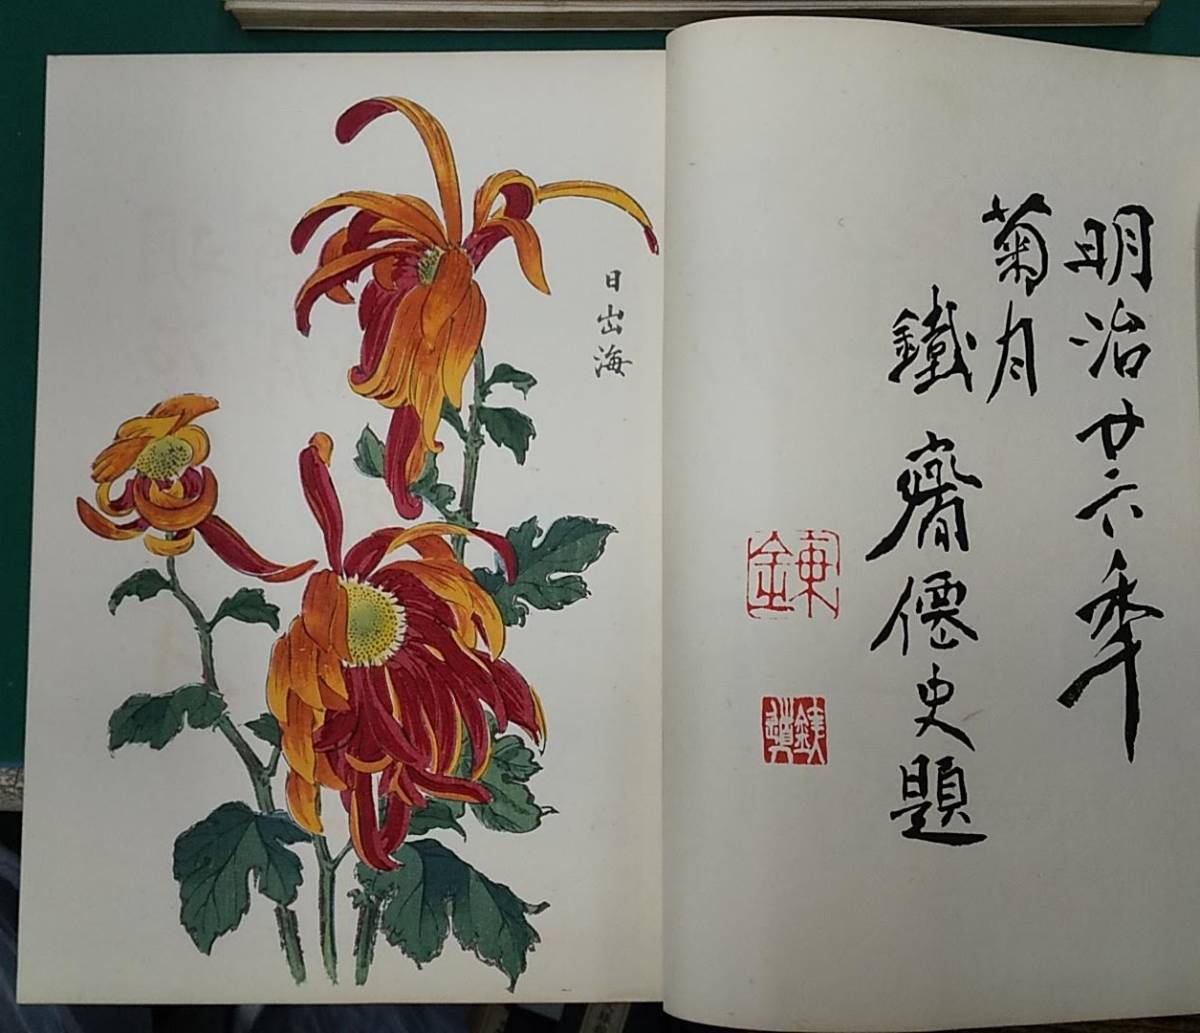 明治廿六季
菊月
鐵齋僊史題
日出海